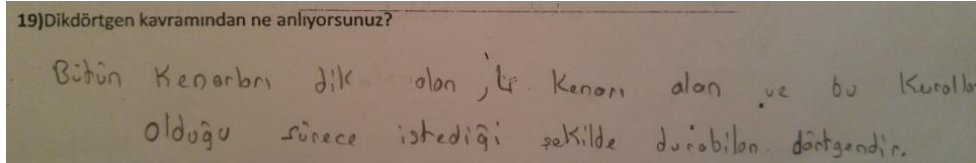 19)Dikdörtgen kavramından ne anlıyorsunuz?
Bütün Kenarları dik olan, Kenarı olan ve bu Kurallar
olduğu sürece istediği şekilde durabilen dörtgendir.